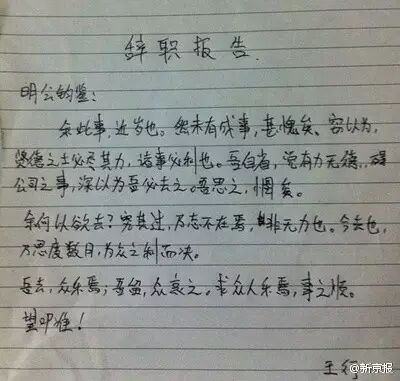 辞职报告
明公钧鉴:
余此事,近岁也。然未有成事,甚愧矣。窃以为,
贤德之士必尽其力,诸事必利也。吾自省,觉有力无德,碍
公司之事,深以为吾必去之。吾思之,惆矣。
余何以欲去?究其过,乃志不在焉,非无力也。今去也,
乃思度数月,为众之利而决。
吾去,众乐焉;吾留,众哀之。求众人乐焉,事之顺。
望叩准!
王行
@新京报